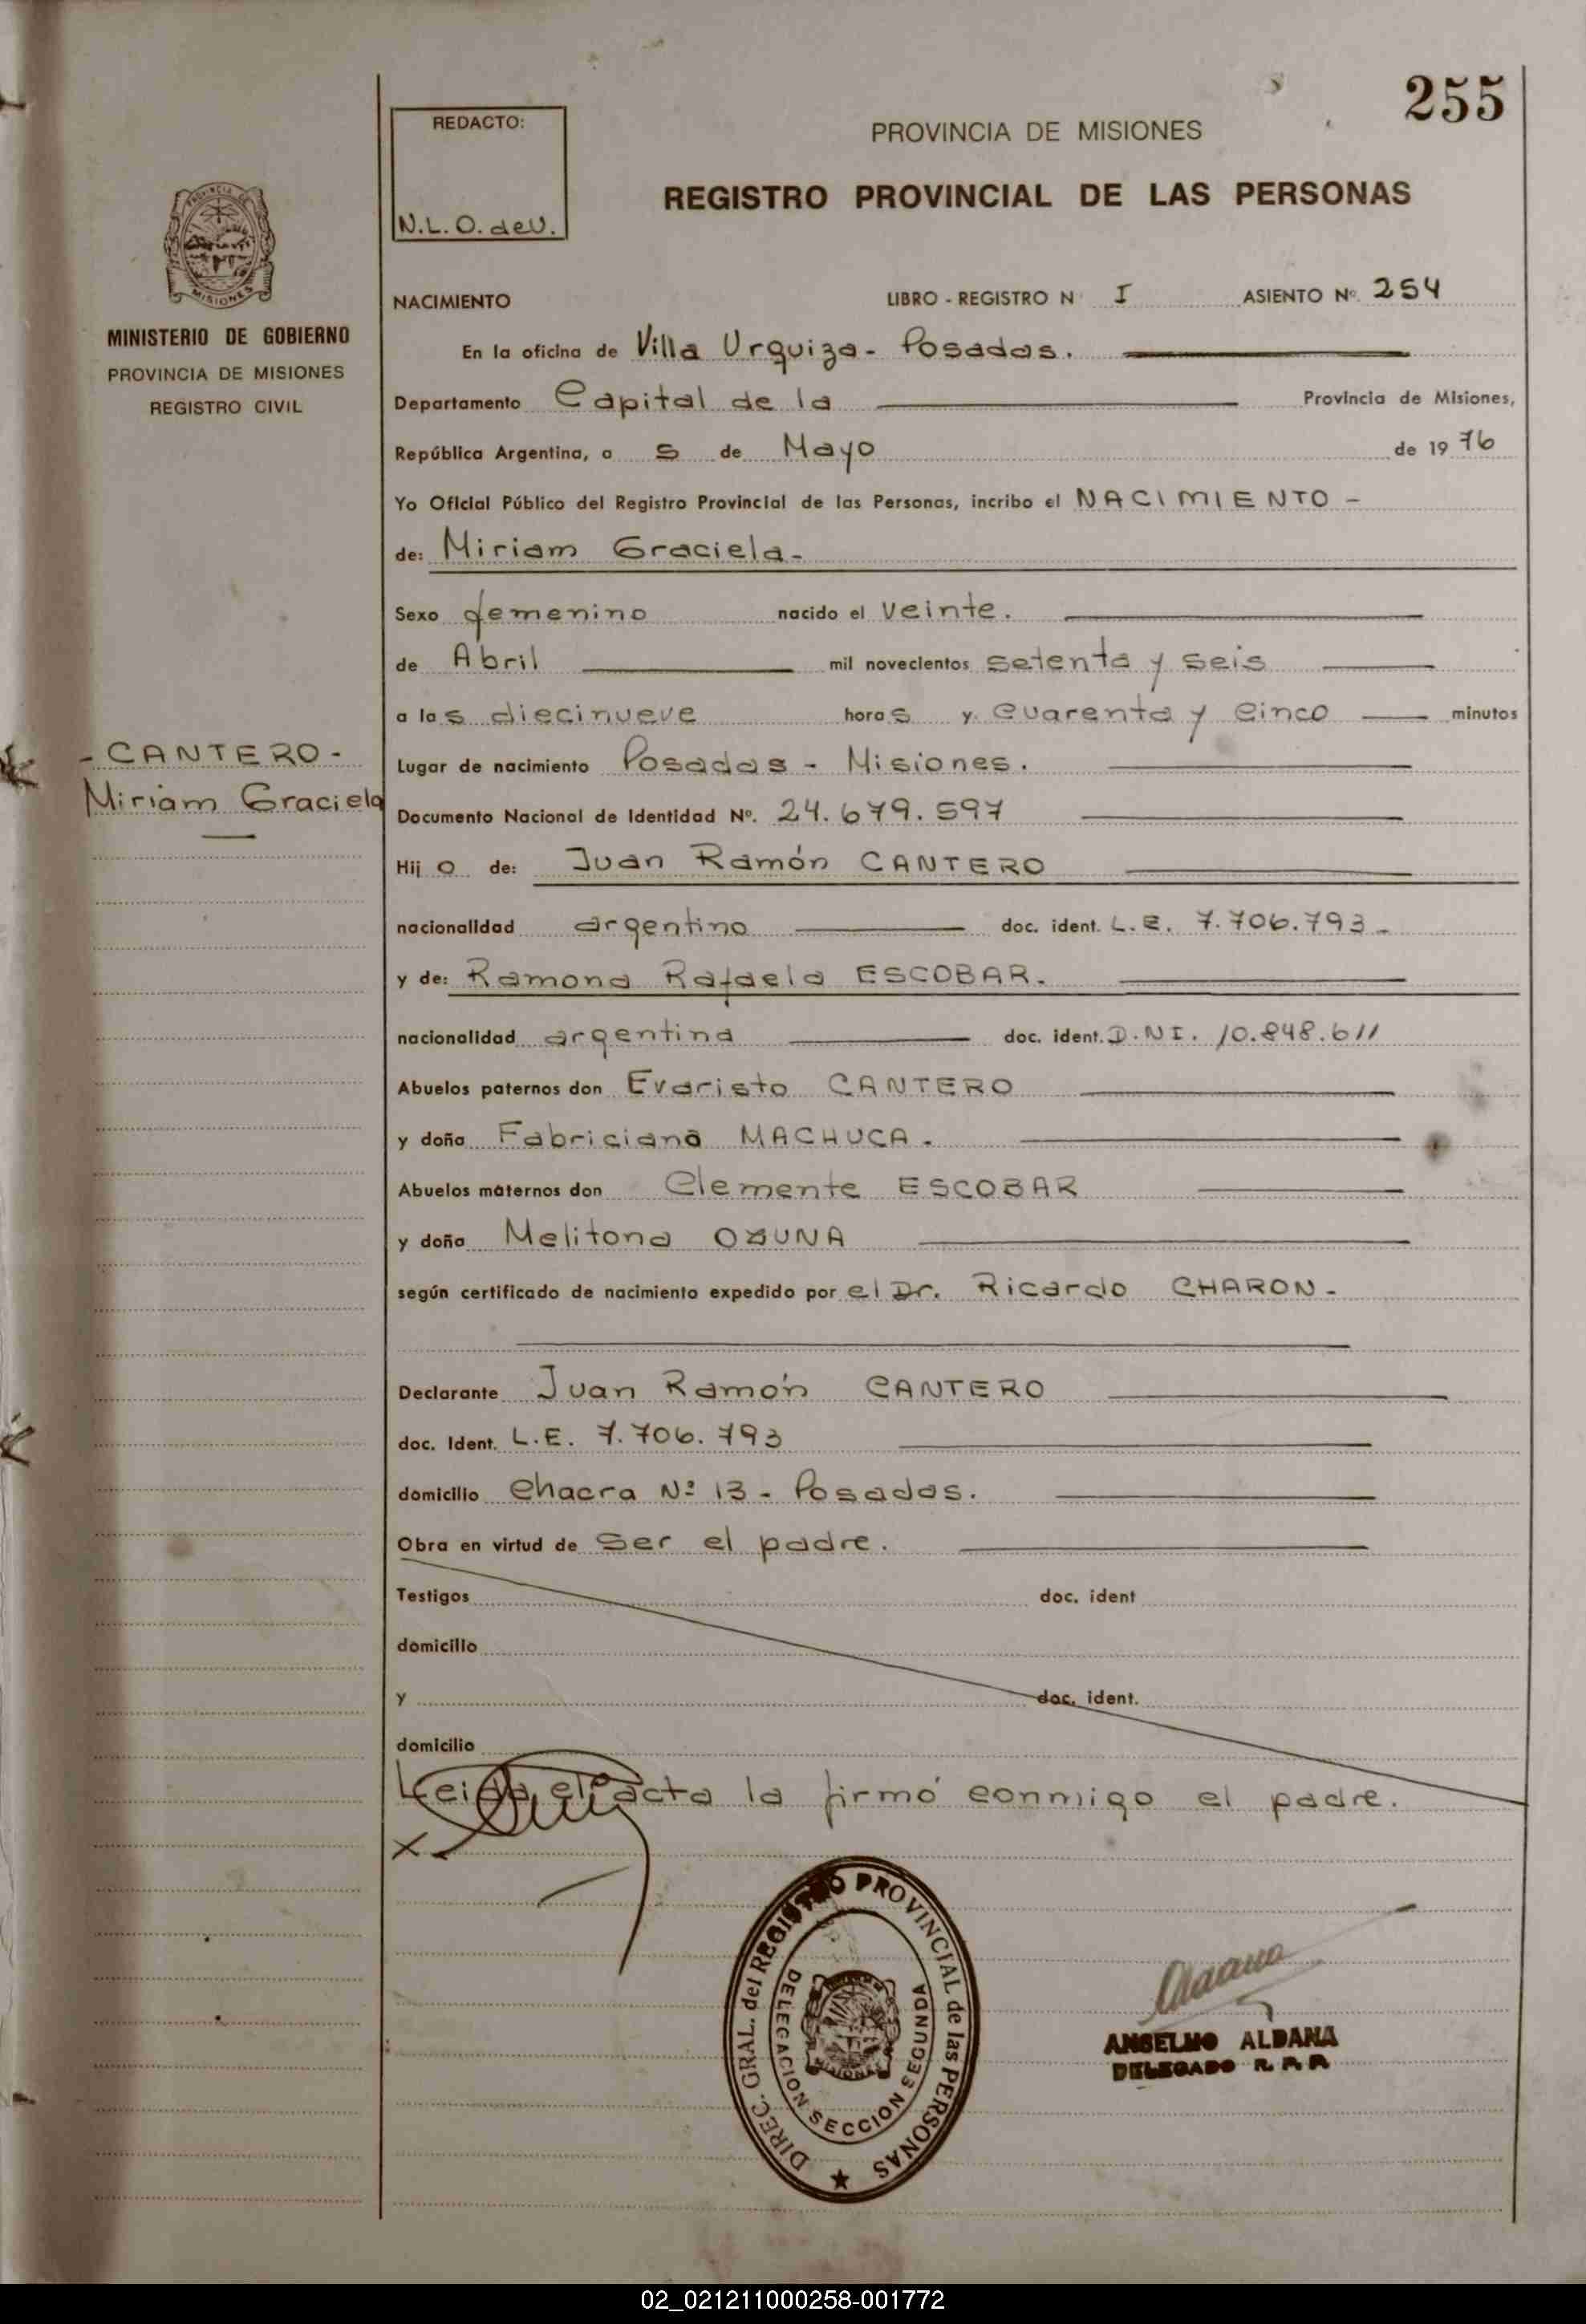 255
REDACTO:
N.L.O. de U.
PROVINCIA DE MISIONES
REGISTRO PROVINCIAL DE LAS PERSONAS
PROVINCIA DE MISIONES
MINISTERIO DE GOBIERNO
PROVINCIA DE MISIONES
REGISTRO CIVIL
- CANTERO -
Miriam Graciela
NACIMIENTO LIBRO - REGISTRO N I ASIENTO Nº. 254
En la oficina de Villa Urquiza - Posadas.
Departamento Capital de la Provincia de Misiones,
República Argentina, a 5 de Mayo de 1976
Yo Oficial Público del Registro Provincial de las Personas, incribo el NACIMIENTO -
de: Miriam Graciela -
Sexo femenino nacido el veinte.
de Abril mil novecientos setenta y seis
a las diecinueve horas y cuarenta y cinco minutos
Lugar de nacimiento Posadas - Misiones.
Documento Nacional de Identidad Nº. 24.679.597
Hijo de: Juan Ramón CANTERO
nacionalidad argentino doc. ident. L.E. 7.706.793 -
y de: Ramona Rafaela ESCOBAR.
nacionalidad argentina doc. ident. D.N.I. 10.848.611
Abuelos paternos don Evaristo CANTERO
y doña Fabriciana MACHUCA.
Abuelos maternos don Clemente ESCOBAR
y doña Melitona OZUNA
según certificado de nacimiento expedido por el Dr. Ricardo CHARON -
Declarante Juan Ramón CANTERO
doc. Ident. L.E. 7.706.793
domicilio Chacra Nº 13 - Posadas.
Obra en virtud de ser el padre.
Testigos doc. ident
domicilio
y doc. ident.
domicilio
Leida el acta la firmó conmigo el padre.
X
DIREC. GRAL. del REGISTRO PROVINCIAL de las PERSONAS
DELEGACION SECCION SEGUNDA
MISIONES
ANSELMO ALDANA
DELEGADO R. P. P.
02_021211000258-001772